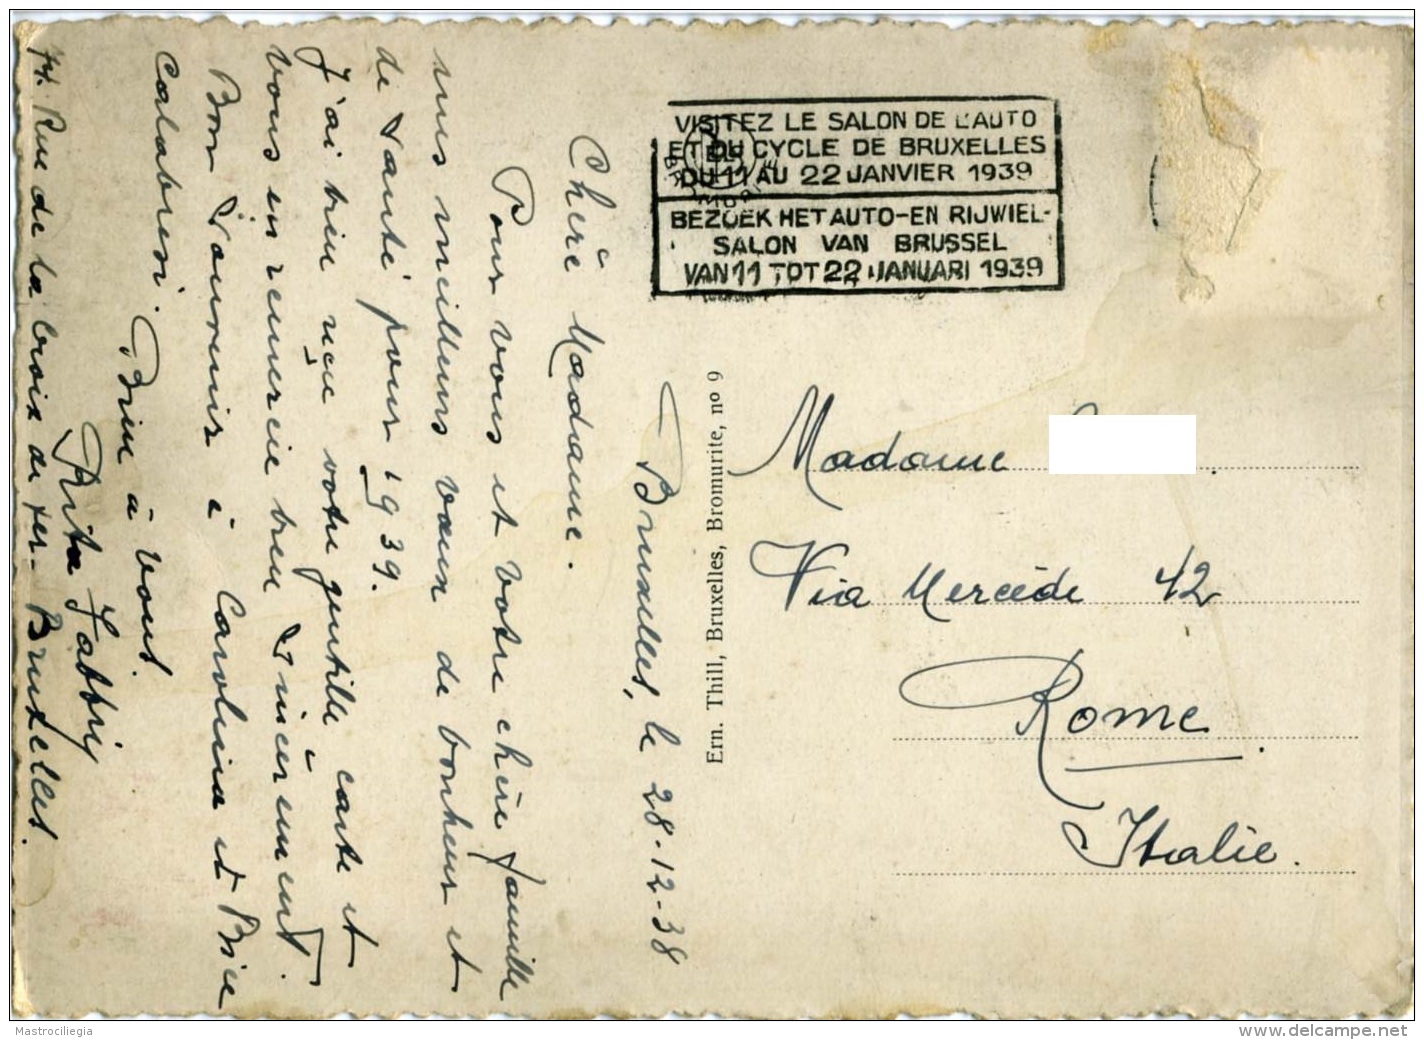 Bruxelles, le 28-12-38
Chère Madame.
Pour vous et votre chère famille
mes meilleurs vœux de bonheur et
de santé pour 1939.
J'ai bien reçu votre gentille carte et
vous en remercie bien sincèrement.
Bon souvenir à Carolina et
Calabresi.
Bien à vous.
Rita Fabbri
Rue de la Croix de fer - Bruxelles.
VISITEZ LE SALON DE L'AUTO
ET DU CYCLE DE BRUXELLES
DU 11 AU 22 JANVIER 1939
BEZOEK HET AUTO-EN RIJWIEL-
SALON VAN BRUSSEL
VAN 11 TOT 22 JANUARI 1939
Ern. Thill, Bruxelles, Bromurite, no 9
Madame
Via Mercède 42
Rome.
Italie.
Mastrociliegia
www.delcampe.net